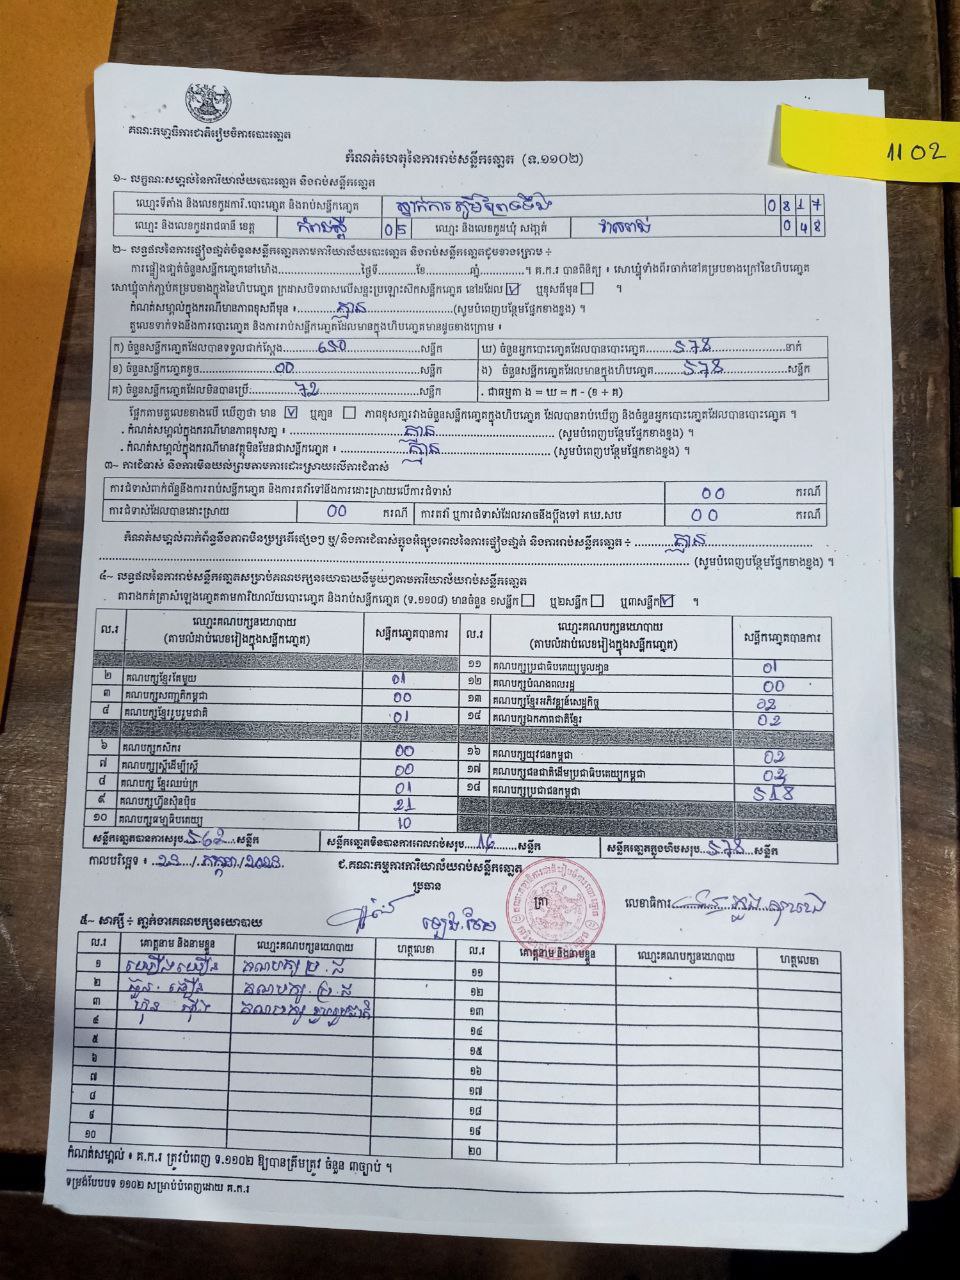 គណៈកម្មាធិការជាតិរៀបចំការបោះឆ្នោត
កំណត់ហេតុនៃការរាប់សន្លឹកឆ្នោត (ទ.១១០២)
1102
១~ លក្ខណៈសម្គាល់នៃការិយាល័យបោះឆ្នោត និងរាប់សន្លឹកឆ្នោត
ឈ្មោះទីតាំង និងលេខកូដការិ.បោះឆ្នោត និងរាប់សន្លឹកឆ្នោត 0817
ឈ្មោះ និងលេខកូដរាជធានី ខេត្ត កំពង់ស្ពឺ 05 ឈ្មោះ និងលេខកូដឃុំ សង្កាត់ 048
២~ លទ្ធផលនៃការផ្ទៀងផ្ទាត់ចំនួនសន្លឹកឆ្នោតតាមការិយាល័យបោះឆ្នោត និងរាប់សន្លឹកឆ្នោតដូចខាងក្រោម ÷
ការផ្ទៀងផ្ទាត់ចំនួនសន្លឹកឆ្នោតនៅម៉ោង......ថ្ងៃទី......ខែ......ឆ្នាំ......។ គ.ក.រ បានពិនិត្យ ៖ សោឃ្លុំទាំងពីរចាក់នៅគម្របខាងក្រៅនៃហិបឆ្នោត
សោឃ្លុំចាក់ភ្ជាប់គម្របខាងក្នុងនៃហិបឆ្នោត ក្រដាសបិទពាសលើសន្ទះប្រឡោះស៊កសន្លឹកឆ្នោត នៅដដែល ☑ ឬខុសពីមុន ☐ ។
កំណត់សម្គាល់ក្នុងករណីមានភាពខុសពីមុន ៖ គ្មាន (សូមបំពេញបន្ថែមផ្នែកខាងខ្នង) ។
តួលេខទាក់ទងនឹងការបោះឆ្នោត និងការរាប់សន្លឹកឆ្នោតដែលមានក្នុងហិបឆ្នោតមានដូចខាងក្រោម ៖
ក) ចំនួនសន្លឹកឆ្នោតដែលបានទទួលជាក់ស្តែង 650 សន្លឹក ឃ) ចំនួនអ្នកបោះឆ្នោតដែលបានបោះឆ្នោត 578 នាក់
ខ) ចំនួនសន្លឹកឆ្នោតខូច 00 សន្លឹក ង) ចំនួនសន្លឹកឆ្នោតដែលមានក្នុងហិបឆ្នោត 578 សន្លឹក
គ) ចំនួនសន្លឹកឆ្នោតដែលមិនបានប្រើ 72 សន្លឹក . ជាធម្មតា ង = ឃ = ក - (ខ + គ)
ផ្អែកតាមតួលេខខាងលើ ឃើញថា មាន ☑ ឬគ្មាន ☐ ភាពខុសគ្នារវាងចំនួនសន្លឹកឆ្នោតក្នុងហិបឆ្នោត ដែលបានរាប់ឃើញ និងចំនួនអ្នកបោះឆ្នោតដែលបានបោះឆ្នោត ។
. កំណត់សម្គាល់ក្នុងករណីមានភាពខុសគ្នា ៖ គ្មាន (សូមបំពេញបន្ថែមផ្នែកខាងខ្នង) ។
. កំណត់សម្គាល់ក្នុងករណីមានវត្ថុមិនមែនជាសន្លឹកឆ្នោត ៖ គ្មាន (សូមបំពេញបន្ថែមផ្នែកខាងខ្នង) ។
៣~ ការជំទាស់ និងការមិនយល់ព្រមតាមការដោះស្រាយលើការជំទាស់
ការជំទាស់ពាក់ព័ន្ធនឹងការរាប់សន្លឹកឆ្នោត និងការតវ៉ាទៅនឹងការដោះស្រាយលើការជំទាស់ 00 ករណី
ការជំទាស់ដែលបានដោះស្រាយ 00 ករណី ការតវ៉ា ឬការជំទាស់ដែលអាចនឹងប្តឹងទៅ គឃ.សប 00 ករណី
កំណត់សម្គាល់ពាក់ព័ន្ធនឹងភាពមិនប្រក្រតីផ្សេងៗ ឬ/និងការជំទាស់ក្នុងអំឡុងពេលនៃការផ្ទៀងផ្ទាត់ និងការរាប់សន្លឹកឆ្នោត ÷ គ្មាន
(សូមបំពេញបន្ថែមផ្នែកខាងខ្នង) ។
៤~ លទ្ធផលនៃការរាប់សន្លឹកឆ្នោតសម្រាប់គណបក្សនយោបាយនីមួយៗតាមការិយាល័យរាប់សន្លឹកឆ្នោត
តារាងកត់ត្រាសំឡេងឆ្នោតតាមការិយាល័យបោះឆ្នោត និងរាប់សន្លឹកឆ្នោត (ទ.១១០៨) មានចំនួន ១សន្លឹក ☐ ឬ២សន្លឹក ☐ ឬ៣សន្លឹក ☑ ។
ល.រ ឈ្មោះគណបក្សនយោបាយ (តាមលំដាប់លេខរៀងក្នុងសន្លឹកឆ្នោត) សន្លឹកឆ្នោតបានការ ល.រ ឈ្មោះគណបក្សនយោបាយ (តាមលំដាប់លេខរៀងក្នុងសន្លឹកឆ្នោត) សន្លឹកឆ្នោតបានការ
១១ គណបក្សប្រជាធិបតេយ្យមូលដ្ឋាន 01
២ គណបក្សខ្មែរតែមួយ 01 ១២ គណបក្សបំណងពលរដ្ឋ 00
៣ គណបក្សសញ្ជាតិកម្ពុជា 00 ១៣ គណបក្សខ្មែរអភិវឌ្ឍន៍សេដ្ឋកិច្ច 02
៤ គណបក្សខ្មែររួបរួមជាតិ 01 ១៤ គណបក្សឯកភាពជាតិខ្មែរ 02
៦ គណបក្សកសិករ 00 ១៦ គណបក្សយុវជនកម្ពុជា 02
៧ គណបក្សស្ត្រីដើម្បីស្ត្រី 00 ១៧ គណបក្សជនជាតិដើមប្រជាធិបតេយ្យកម្ពុជា 02
៨ គណបក្ស ខ្មែរឈប់ក្រ 01 ១៨ គណបក្សប្រជាជនកម្ពុជា 518
៩ គណបក្សហ្វ៊ុនស៊ិនប៉ិច 21
១០ គណបក្សធម្មាធិបតេយ្យ 10
សន្លឹកឆ្នោតបានការសរុប 562 សន្លឹក សន្លឹកឆ្នោតមិនបានការពេលរាប់សរុប 16 សន្លឹក សន្លឹកឆ្នោតក្នុងហិបសរុប 578 សន្លឹក
កាលបរិច្ឆេទ ៖ 23 / កក្កដា / 2023 ជ.គណៈកម្មការការិយាល័យរាប់សន្លឹកឆ្នោត
ប្រធាន ត្រា លេខាធិការ
៥~ សាក្សី ÷ ភ្នាក់ងារគណបក្សនយោបាយ
ល.រ គោត្តនាម និងនាមខ្លួន ឈ្មោះគណបក្សនយោបាយ ហត្ថលេខា ល.រ គោត្តនាម និងនាមខ្លួន ឈ្មោះគណបក្សនយោបាយ ហត្ថលេខា
១ គណបក្ស ប្រ.ជ ១១
២ គណបក្ស ប្រ.ជ ១២
៣ គណបក្ស ខ្មែររួបរួមជាតិ ១៣
៤ ១៤
៥ ១៥
៦ ១៦
៧ ១៧
៨ ១៨
៩ ១៩
១០ ២០
កំណត់សម្គាល់ ៖ គ.ក.រ ត្រូវបំពេញ ទ.១១០២ ឱ្យបានត្រឹមត្រូវ ចំនួន ៣ច្បាប់ ។
ទម្រង់បែបបទ ១១០២ សម្រាប់បំពេញដោយ គ.ក.រ